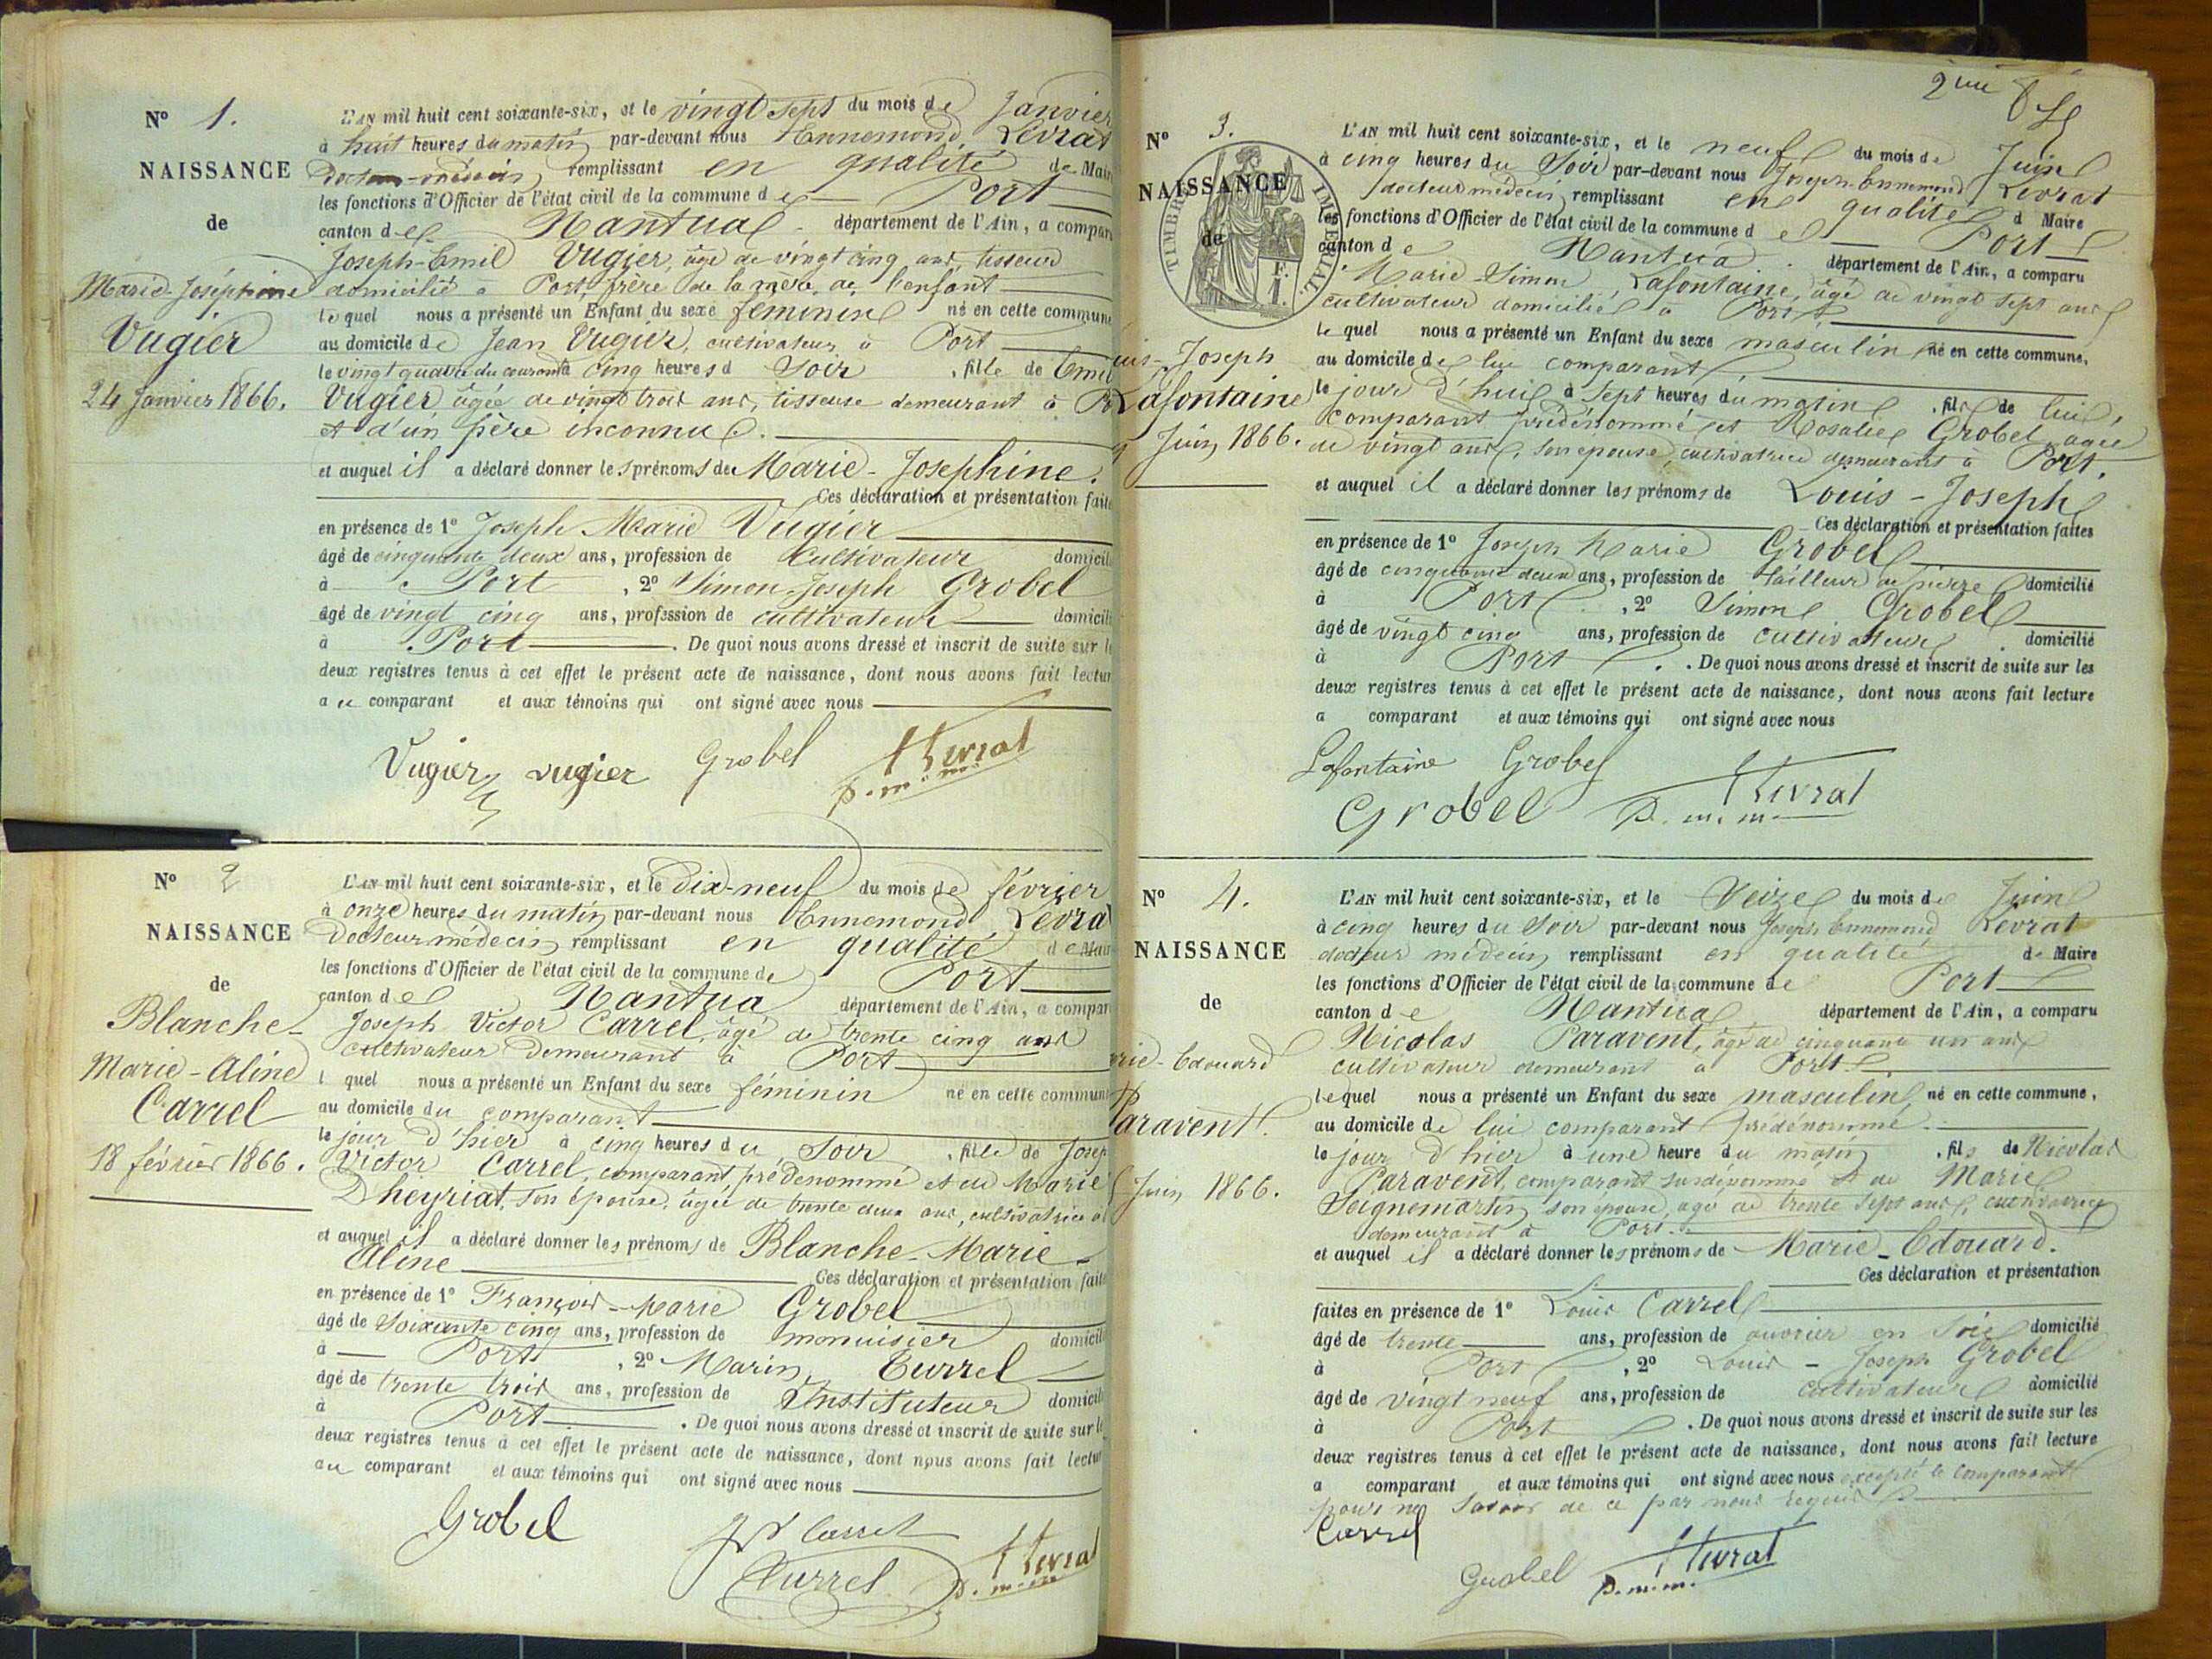 N° 1.
NAISSANCE
de
Marie-Joséphine
Vugier
24 Janvier 1866.
L'AN mil huit cent soixante-six, et le vingt sept du mois de Janvier
à huit heures du matin par-devant nous Ennemond Levrat
Docteur-médecin remplissant en qualité de Mair
les fonctions d'Officier de l'état civil de la commune de Port
canton de Nantua département de l'Ain, a compar
Joseph-Emil Vugier, âgé de vingt cinq ans, tisseur
domicilié à Port, frère de la mère de l'enfant
lequel nous a présenté un Enfant du sexe féminin né en cette commune
au domicile de Jean Vugier, cultivateur à Port
le vingt quatre du courant à cinq heures d Soir , fille de Emil
Vugier âgée de vingt trois ans, tisseuse demeurant à Po
et d'un père inconnu.
et auquel il a déclaré donner les prénoms de Marie-Josephine.
Ces déclaration et présentation faite
en présence de 1° Joseph Marie Vugier
âgé de cinquante deux ans, profession de Cultivateur domicil
à Port , 2° Simon-Joseph Grobel
âgé de vingt cinq ans, profession de cultivateur domicili
à Port . De quoi nous avons dressé et inscrit de suite sur le
deux registres tenus à cet effet le présent acte de naissance, dont nous avons fait lectur
au comparant et aux témoins qui ont signé avec nous
Vugier vugier Grobel Levrat
D. m. m.
N° 2
NAISSANCE
de
Blanche-
Marie-Aline
Carrel
18 février 1866.
L'AN mil huit cent soixante-six, et le Dix-neuf du mois de février
à onze heures du matin par-devant nous Ennemond Levrat
Docteur médecin remplissant en qualité de Mair
les fonctions d'Officier de l'état civil de la commune de Port
canton de Nantua département de l'Ain, a compar
Joseph Victor Carrel, âgé de trente cinq ans
cultivateur demeurant à Port
l quel nous a présenté un Enfant du sexe féminin né en cette commun
au domicile du comparant
le jour d'hier à cinq heures du Soir , fille de Josep
Victor Carrel, comparant, prédénommé et de Marie
Dheyriat, son épouse, âgée de trente deux ans, cultivatrice à
et auquel il a déclaré donner les prénoms de Blanche-Marie-
Aline
Ces déclaration et présentation faite
en présence de 1° François-Marie Grobel
âgé de Soixante cinq ans, profession de menuisier domicili
à Port , 2° Marin Turrel
âgé de trente trois ans, profession de Instituteur domicili
à Port . De quoi nous avons dressé et inscrit de suite sur le
deux registres tenus à cet effet le présent acte de naissance, dont nous avons fait lectur
au comparant et aux témoins qui ont signé avec nous
Grobel JV Carrel Levrat
Turrel D. m. m.
2me
N° 3.
NAISSANCE
de
TIMBRE IMPERIAL
uis-Joseph
Lafontaine
9 Juin 1866.
L'AN mil huit cent soixante-six, et le neuf du mois de Juin
à cinq heures du Soir par-devant nous Joseph-Ennemond Levrat
docteur médecin remplissant en qualité d Maire
les fonctions d'Officier de l'état civil de la commune de Port
canton de Nantua département de l'Ain, a comparu
Marie-Simon Lafontaine, âgé de vingt sept ans
cultivateur domicilié à Port
le quel nous a présenté un Enfant du sexe masculin né en cette commune,
au domicile de lui comparant
le jour d'hui à Sept heures du matin , fils de lui,
comparant prédénommé et Rosalie Grobel âgée
de vingt ans, son épouse, cultivatrice demeurant à Port.
et auquel il a déclaré donner les prénoms de Louis-Joseph
Ces déclaration et présentation faites
en présence de 1° Joseph Marie Grobel
âgé de cinquante deux ans, profession de tailleur de pierre domicilié
à Port , 2° Simon Grobel
âgé de vingt cinq ans, profession de cultivateur domicilié
à Port . De quoi nous avons dressé et inscrit de suite sur les
deux registres tenus à cet effet le présent acte de naissance, dont nous avons fait lecture
a comparant et aux témoins qui ont signé avec nous
Lafontaine Grobel
Grobel Levrat
D. m. m.
N° 4.
NAISSANCE
de
rie-Edouard
Paravent.
Juin 1866.
L'AN mil huit cent soixante-six, et le Seize du mois de Juin
à cinq heures du Soir par-devant nous Joseph Ennemond Levrat
docteur médecin remplissant en qualité de Maire
les fonctions d'Officier de l'état civil de la commune de Port
canton de Nantua département de l'Ain, a comparu
Nicolas Paravent, âgé de cinquante un ans
cultivateur demeurant à Port
lequel nous a présenté un Enfant du sexe masculin né en cette commune,
au domicile de lui comparant prédénommé.
le jour d'hier à une heure du matin , fils de Nicolas
Paravent, comparant susdénommé et de Marie
Seignemartin son épouse, âgé de trente sept ans, cultivatrice
demeurant à Port.
et auquel il a déclaré donner les prénoms de Marie-Edouard.
Ces déclaration et présentation
faites en présence de 1° Louis Carrel
âgé de trente ans, profession de ouvrier en Soie domicilié
à Port , 2° Louis-Joseph Grobel
âgé de vingt neuf ans, profession de cultivateur domicilié
à Port . De quoi nous avons dressé et inscrit de suite sur les
deux registres tenus à cet effet le présent acte de naissance, dont nous avons fait lecture
a comparant et aux témoins qui ont signé avec nous excepté le comparant
pour ne savoir de ce par nous requis
Carrel
Grobel Levrat
D. m. m.